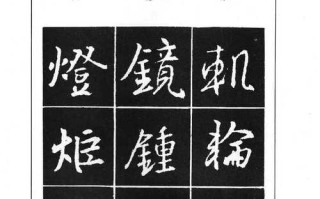 軌輪
鏡鍾
燈炬